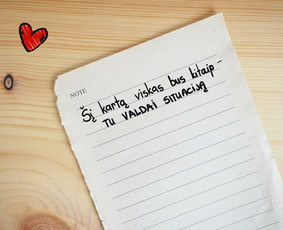 NOTE
Šį kartą viskas bus kitaip -
TU VALDAI SITUACIJĄ